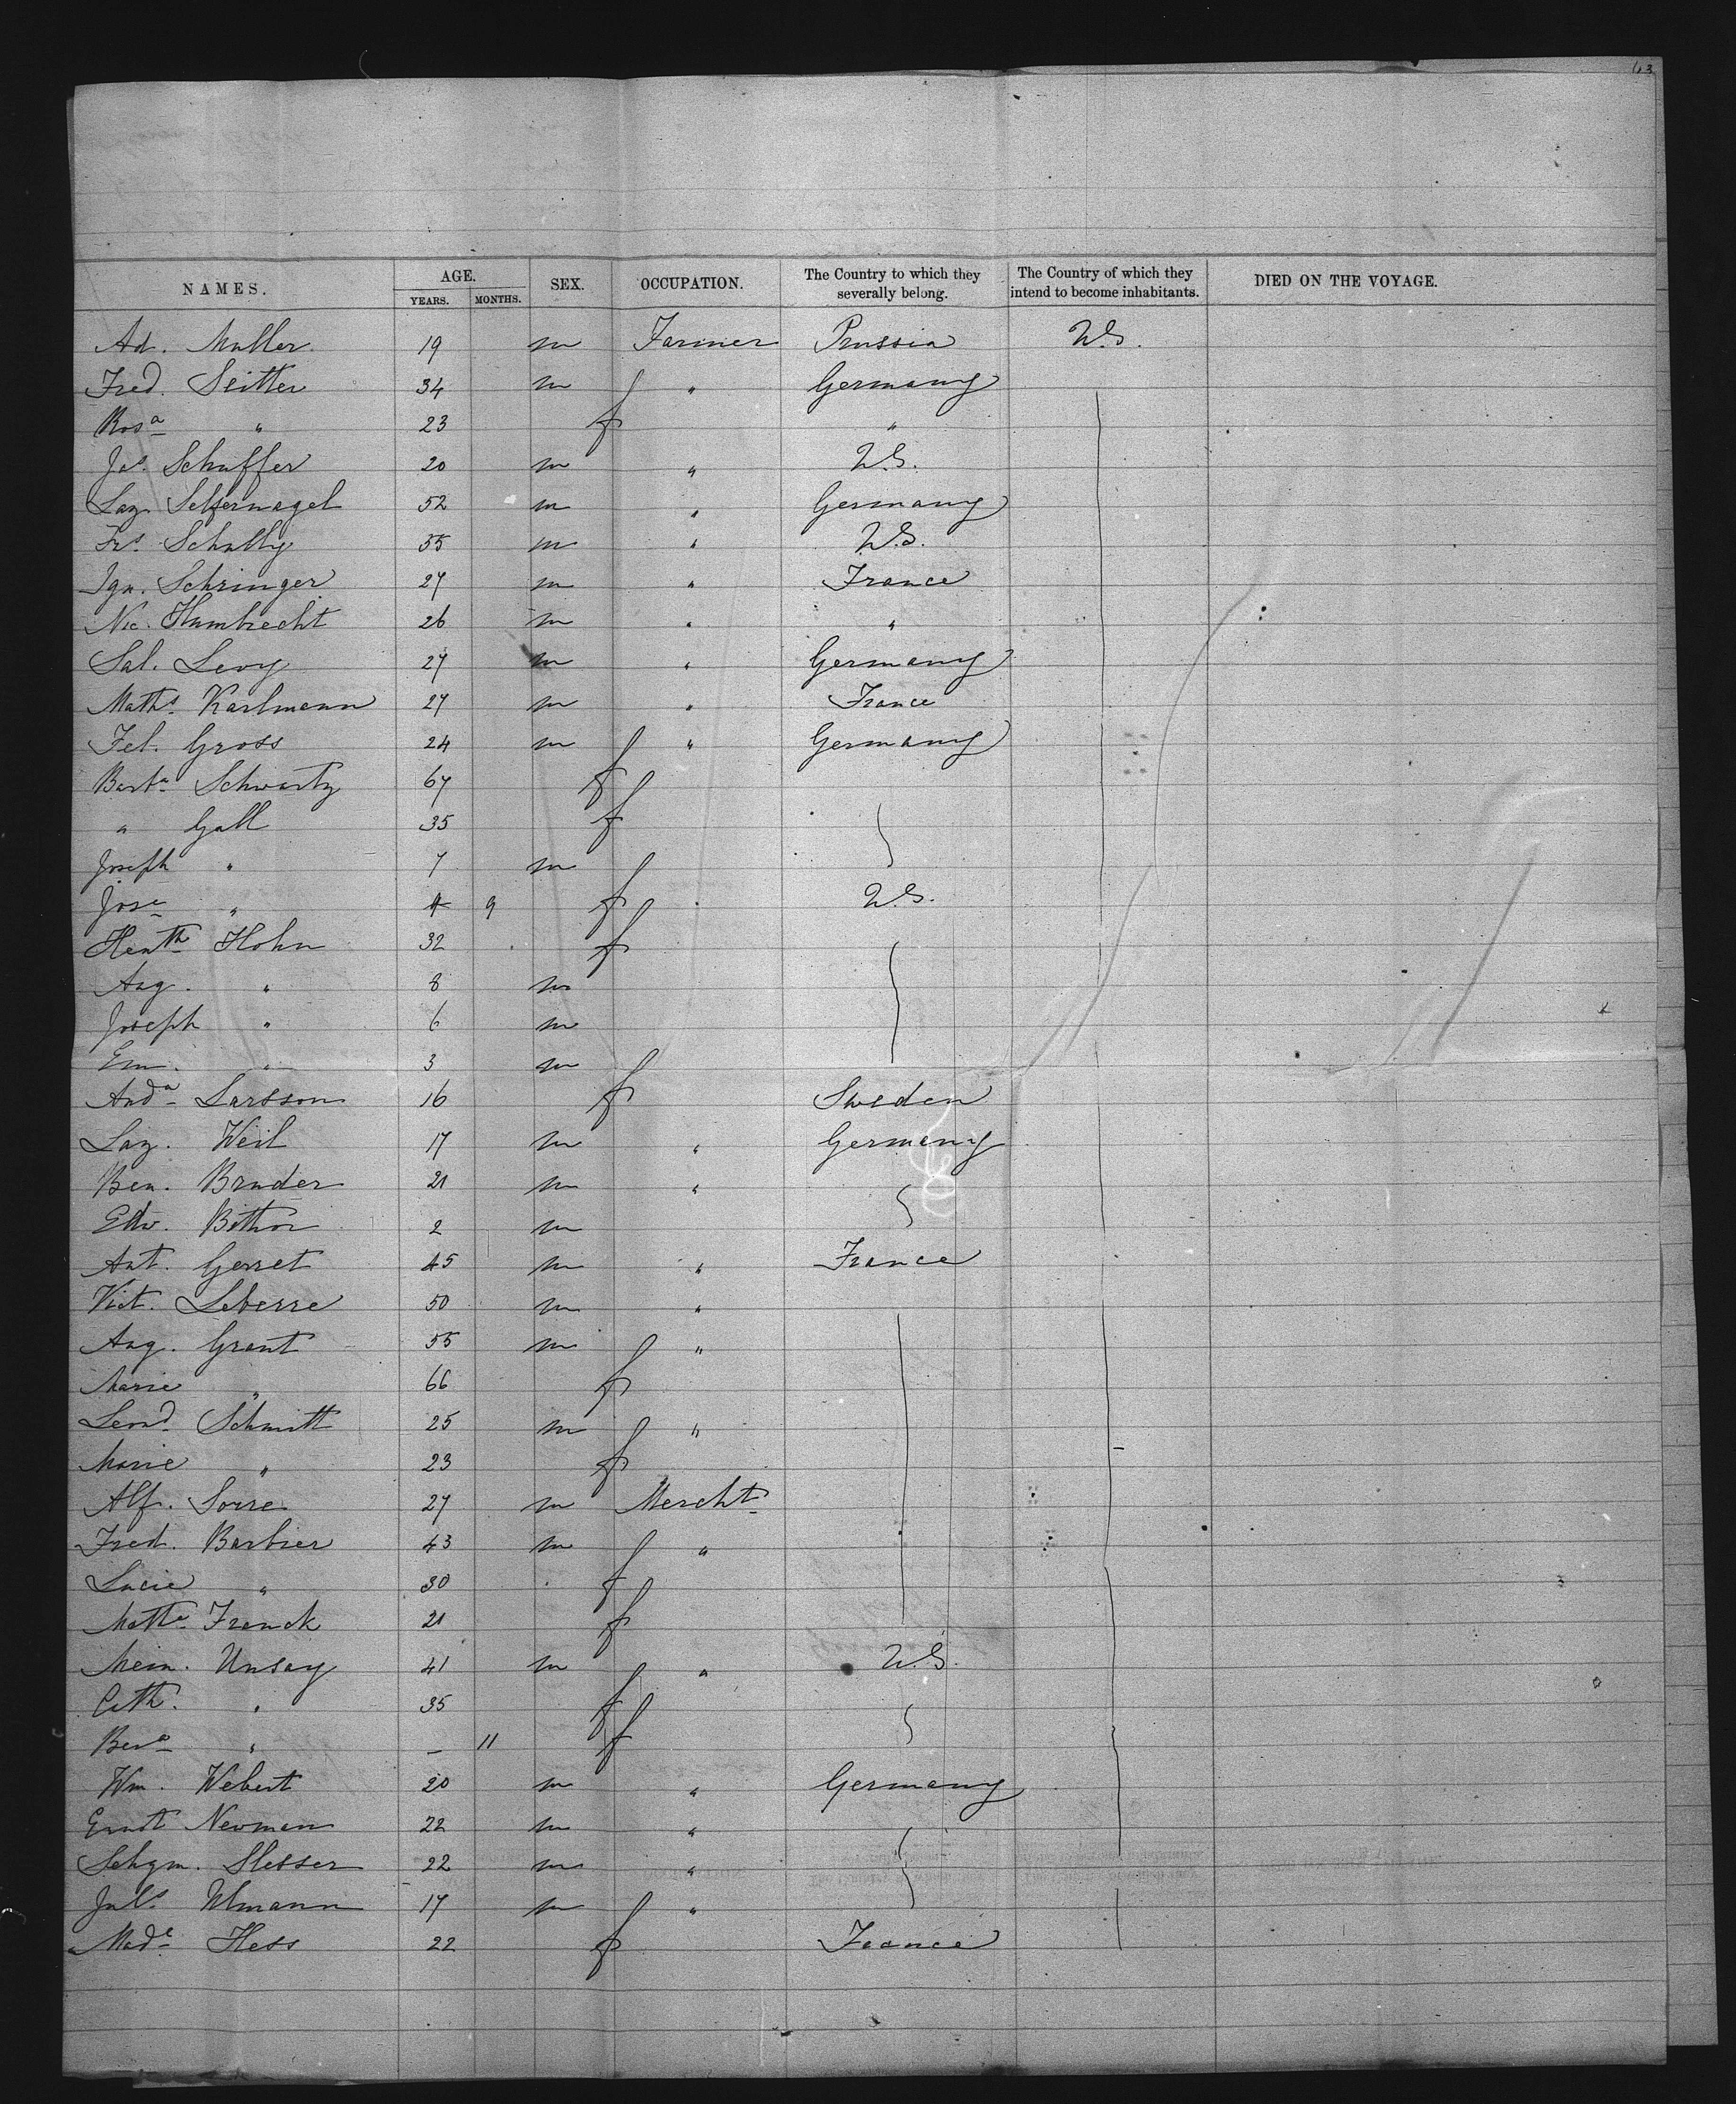 63
NAMES. AGE. YEARS. MONTHS. SEX. OCCUPATION. The Country to which they severally belong. The Country of which they intend to become inhabitants. DIED ON THE VOYAGE.
Ad. Muller 19 m Farmer Prussia U.S.
Fred. Seitter 34 m " Germany
Rosa " 23 f "
Jos. Schuffer 20 m " U.S.
Laz. Selfernagel 52 m " Germany
Frs. Schully 35 m " U.S.
Ign. Schringer 27 m " France
Nic. Humbrecht 26 m " "
Sal. Levy 27 m " Germany
Maths. Karlmann 27 m " France
Fel. Gross 24 m " Germany
Barba Schwartz 67 f
" Gall 35 f
Joseph " 7 m
Jose " 9 f U.S.
Hentte Hohn 32 f
Aug. " 8 m
Joseph " 6 m
Em. " 3 m
Anda Larsson 16 f Sweden
Laz. Weil 17 m " Germany
Ben. Bruder 21 m "
Edw. Bithor 2 m
Ant. Gerret 45 m " France
Vict. Leberre 50 m "
Aug. Grant 55 m "
Marie " 66 f
Leond. Schmitt 25 m "
Marie " 23 f
Alf. Sorre 27 m Mercht
Fred. Barbier 43 m "
Lucie " 30 f
Matha Franck 21 f
Mein. Unsay 41 m " U.S.
Cath. " 35 f
Bera " — 11 f
Wm. Webert 20 m " Germany
Ernst Newman 22 m "
Sehgm. Slesser 22 m "
Juls. Ulmann 17 m "
Made Hess 22 f France